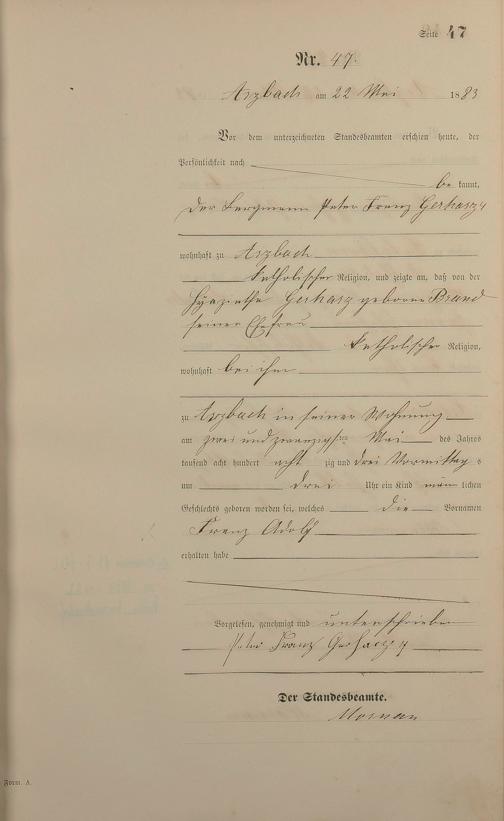 Seite 47
Nr. 47.
Aszbach am 22 Mai 1883
Vor dem unterzeichneten Standesbeamten erschien heute, der
Persönlichkeit nach
be kannt,
der Bergmann Peter Franz Gerharz
wohnhaft zu Aszbach
katholischer Religion, und zeigte an, daß von der
Gerharz geborene Brand
seiner Ehefrau
katholischer Religion,
wohnhaft bei ihm
zu Aszbach in seiner Wohnung
am zwei und zwanzigsten Mai des Jahres
tausend acht hundert acht zig und drei Vormittag s
um drei Uhr ein Kind männ lichen
Geschlechts geboren worden sei, welches die Vornamen
Franz Adolf
erhalten habe
Vorgelesen, genehmigt und unterschrieben
Peter Franz
Der Standesbeamte.
Form. A.